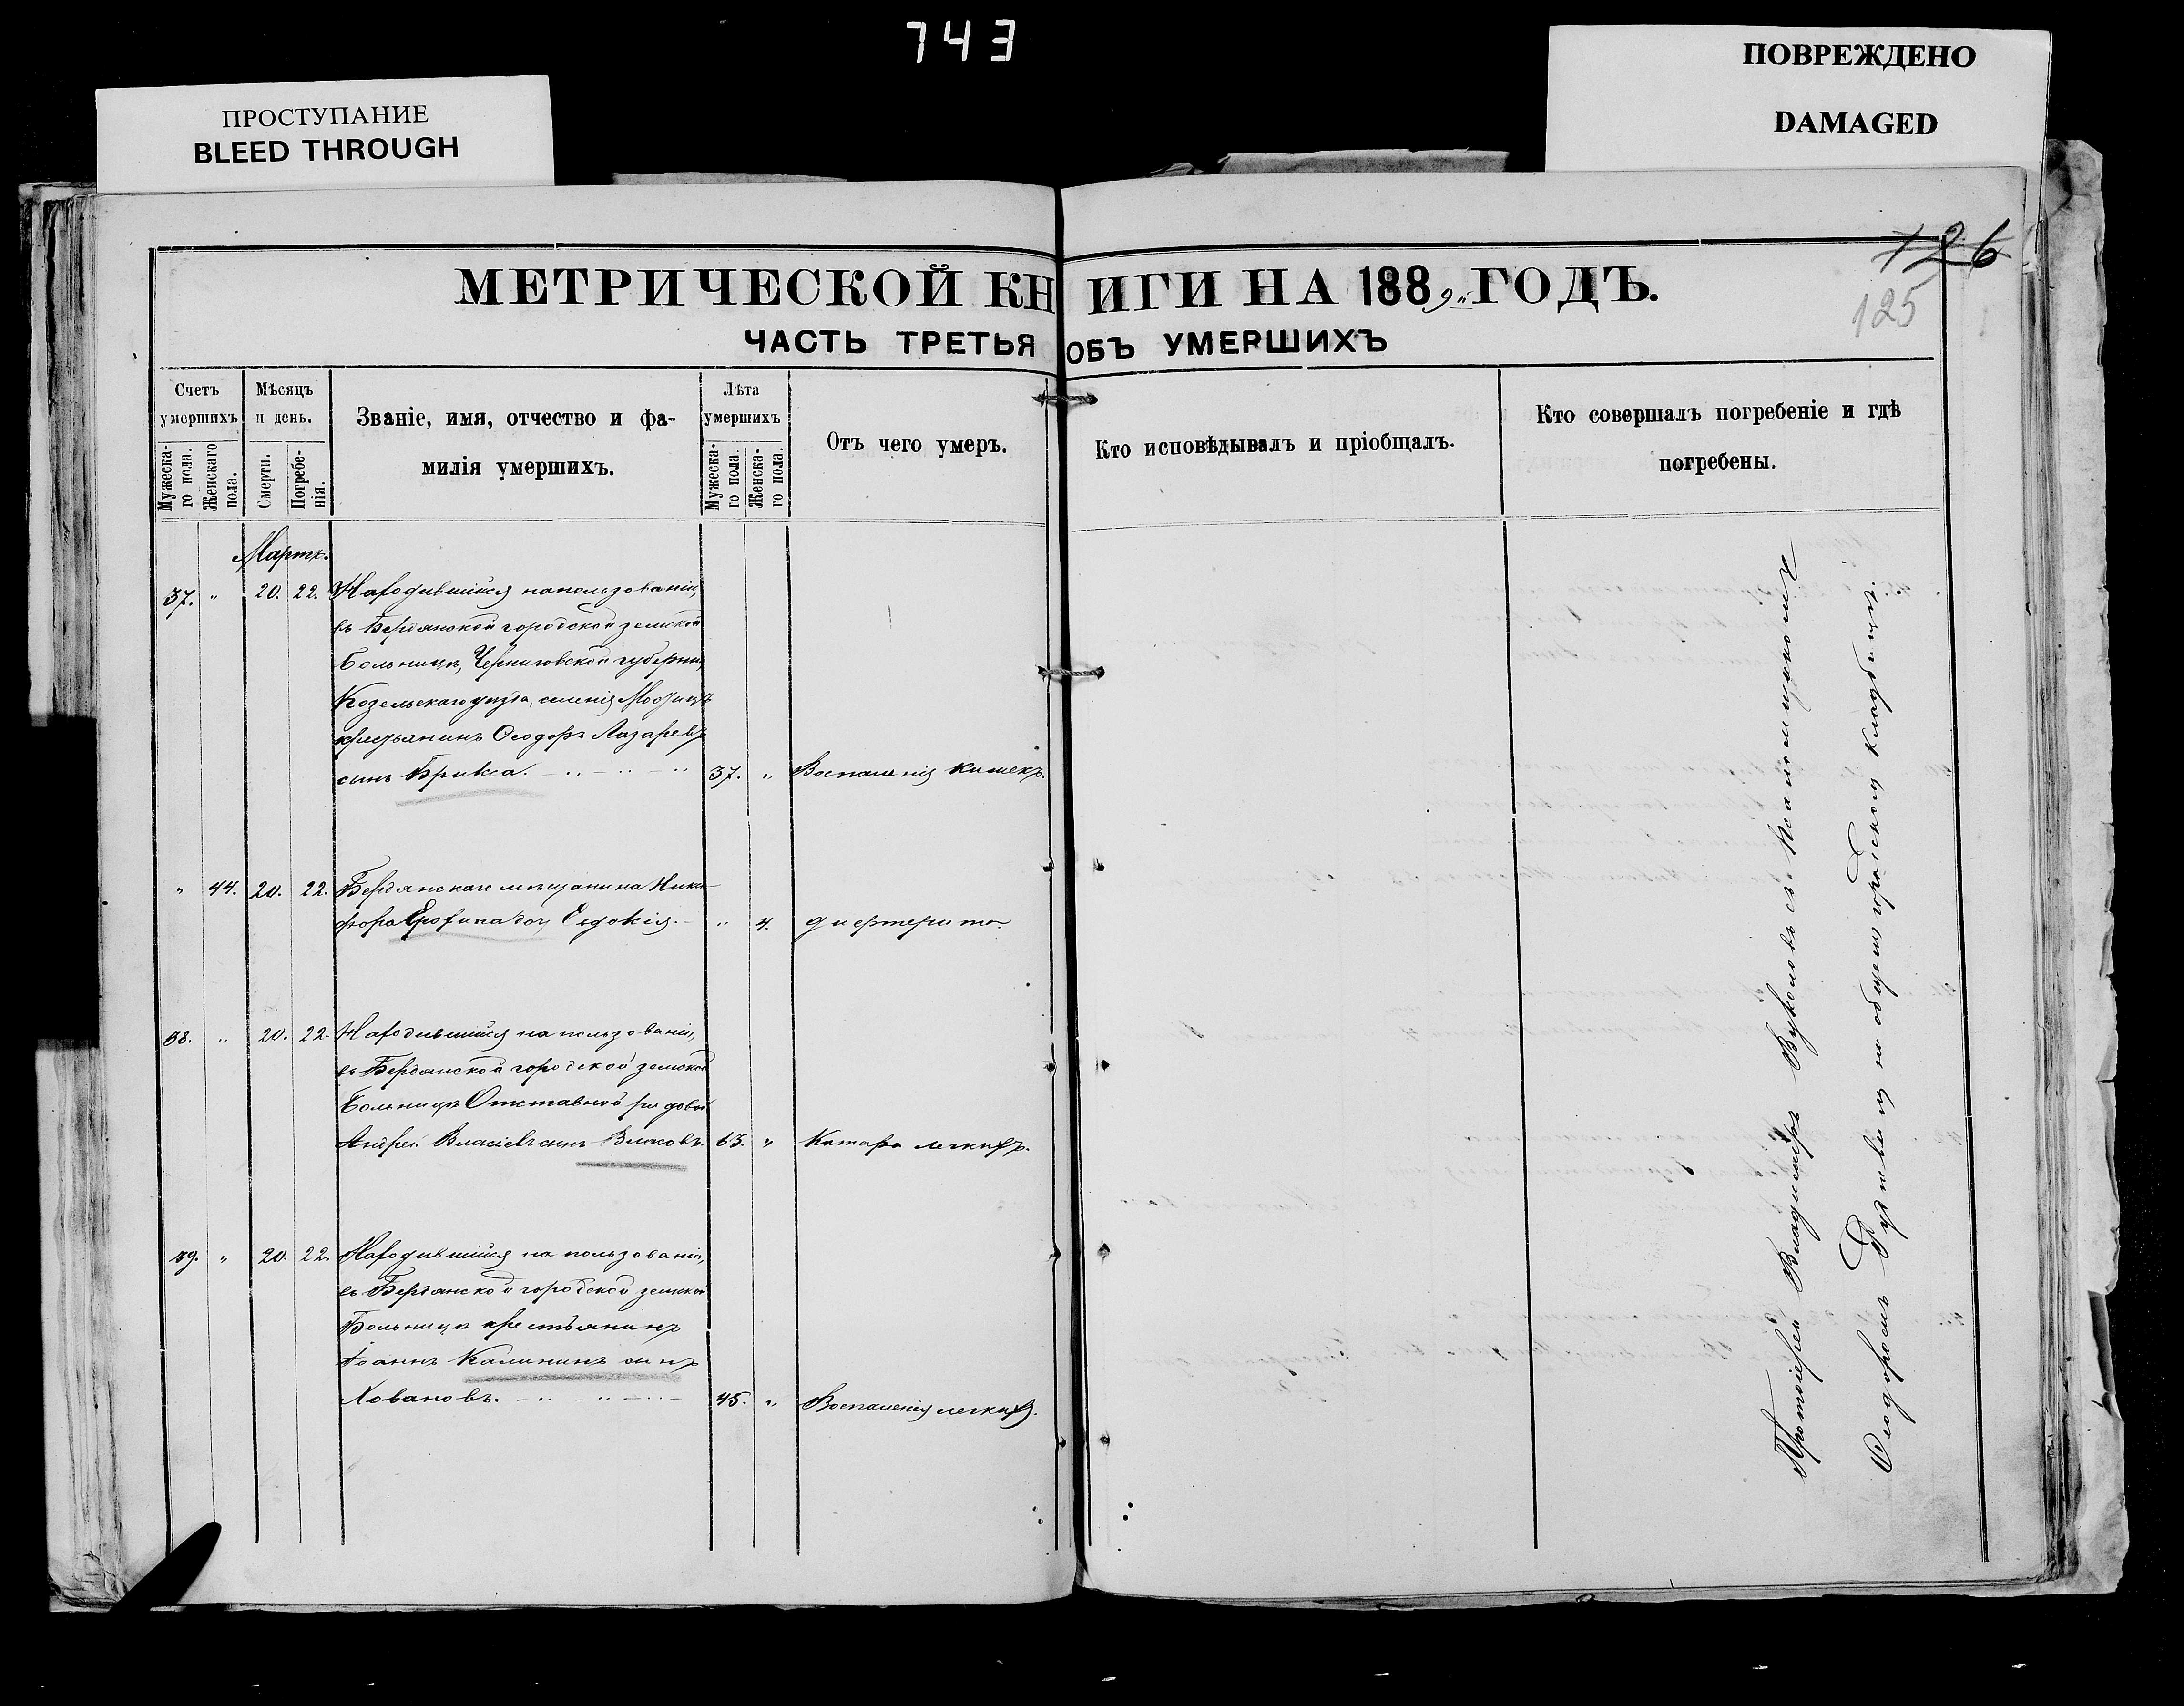 743
ПРОСТУПАНИЕ
BLEED THROUGH
ПОВРЕЖДЕНО
DAMAGED
126
125
МЕТРИЧЕСКОЙ КНИГИ НА 1889й ГОДЪ.
ЧАСТЬ ТРЕТЬЯ ОБЪ УМЕРШИХЪ
Счетъ умершихъ
Мужеска-го пола.
Женскаго пола.
Мѣсяцъ и день.
Смерти.
Погребе-нія.
Званіе, имя, отчество и фа-
милія умершихъ.
Лѣта умершихъ
Мужеска-го пола.
Женска-го пола.
Отъ чего умеръ.
Кто исповѣдывалъ и пріобщалъ.
Кто совершалъ погребеніе и гдѣ
погребены.
Мартъ.
37. " 20. 22. Находившійся на пользованіи,
въ Бердянской городской земской
Больницѣ, Черниговской губерніи,
Козельскаго уѣзда, селенія
крестьянинъ Ѳеодоръ Лазаревъ
сынъ Брикса. 37. " Воспаленія кишекъ.
" 44. 20. 22. Бердянскаго мѣщанина Ники-
фора Ерохина дочь Евдокія. " 4. дифтерита.
38. " 20. 22. Находившійся на пользованіи,
въ Бердянской городской земской
Больницѣ Отставной рядовой
Андрей Власіевъ сынъ Власовъ. 63. " Катара легкихъ.
39. " 20. 22. Находившійся на пользованіи,
въ Бердянской городской земской
Больницѣ крестьянинъ
Іоаннъ Калининъ сынъ
Ховановъ. 45. " Воспаленія легкихъ.
Протоіерей Владиміръ Вуколовъ съ Псаломщикомъ
Ѳеодоромъ на общемъ городскомъ кладбищѣ.